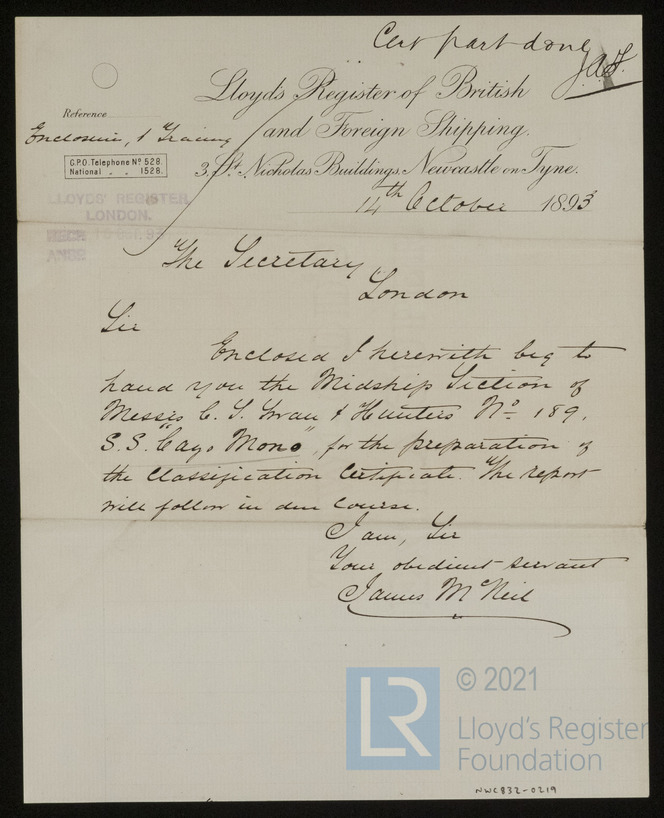 Cert part done
J.A.F.
Lloyds Register of British
and Foreign Shipping.
Reference
Enclosures, 1 Tracing
G.P.O. Telephone No 528.
National " " 1528.
3, St. Nicholas Buildings, Newcastle on Tyne.
14th October 1893
LLOYDS' REGISTER,
LONDON.
RECD 93
ANSD
The Secretary
London
Sir
Enclosed I herewith beg to
hand you the Midship Section of
Messrs C. S. Swan & Hunters No 189.
S.S. "Cayo Mono", for the preparation of
the Classification Certificate. The report
will follow in due course.
I am, Sir
Your obedient servant
James McNeil
LR
© 2021
Lloyd's Register
Foundation
NWC832-0219